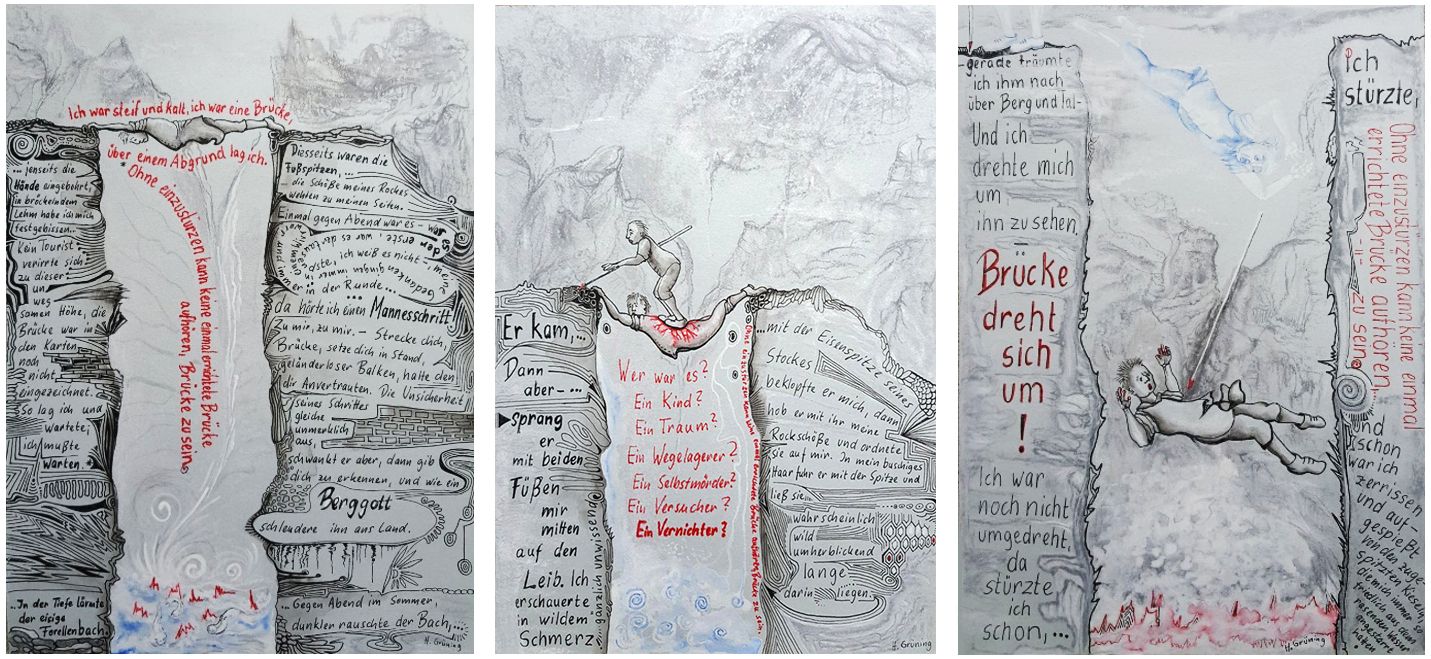 Ich war steif und kalt, ich war eine Brücke,
über einem Abgrund lag ich.
Ohne einzustürzen kann keine einmal errichtete Brücke
aufhören, Brücke zu sein.
... jenseits die
Hände eingebohrt,
in bröckelndem
Lehm habe ich mich
festgebissen...
Kein Tourist
verirrte sich
zu dieser
un
weg
samen Höhe, die
Brücke war in
den Karten
noch
nicht
eingezeichnet.
So lag ich und
wartete;
ich mußte
warten.
...In der Tiefe lärmte
der eisige
Forellenbach.
Diesseits waren die
Fußspitzen, ...
die Schöße meines Rockes
wehten zu meinen Seiten.
Einmal gegen Abend war es - war es
der erste, war es der tausendste, ich weiß es nicht -, meine
Gedanken gingen immer in
und immer
in der Runde...
da hörte ich einen Mannesschritt
Zu mir, zu mir. - Strecke dich,
Brücke, setze dich in Stand,
geländerloser Balken, halte den
dir Anvertrauten. Die Unsicherheit
seines Schrittes
gleiche
unmerklich
aus,
schwankt er aber, dann gib
dich zu erkennen, und wie ein
Berggott
schleudere ihn ans Land.
... Gegen Abend im Sommer,
dunkler rauschte der Bach,...
H. Grüning
Er kam,...
Dann
aber-...
sprang
er
mit beiden
Füßen
mir
mitten
auf den
Leib. Ich
erschauerte
in wildem
Schmerz...
gänzlich unwissend
Wer war es?
Ein Kind?
Ein Traum?
Ein Wegelagerer?
Ein Selbstmörder?
Ein Versucher?
Ein Vernichter?
Ohne einzustürzen kann keine einmal errichtete Brücke aufhören Brücke zu sein.
...mit der Eisenspitze seines
Stockes
beklopfte er mich, dann
hob er mit ihr meine
Rockschöße und ordnete
sie auf mir. In mein buschiges
Haar fuhr er mit der Spitze und
ließ sie...
wahrscheinlich
wild
umherblickend
lange
darin liegen.
H. Grüning
-gerade träumte
ich ihm nach
über Berg und Tal-
Und ich
drehte mich
um,
ihn zu sehen.
-
Brücke
dreht
sich
um
!
Ich war
noch nicht
umgedreht,
da
stürzte
ich
schon,...
ich
stürzte,
Ohne einzustürzen kann keine einmal
errichtete Brücke aufhören...
-"- zu sein.
und
schon
war ich
zerrissen
und auf-
gespießt
von den zuge-
spitzten Kieseln,
die mich immer so
friedlich aus dem
rasenden Wasser
angestarrt
hatten.
H. Grüning